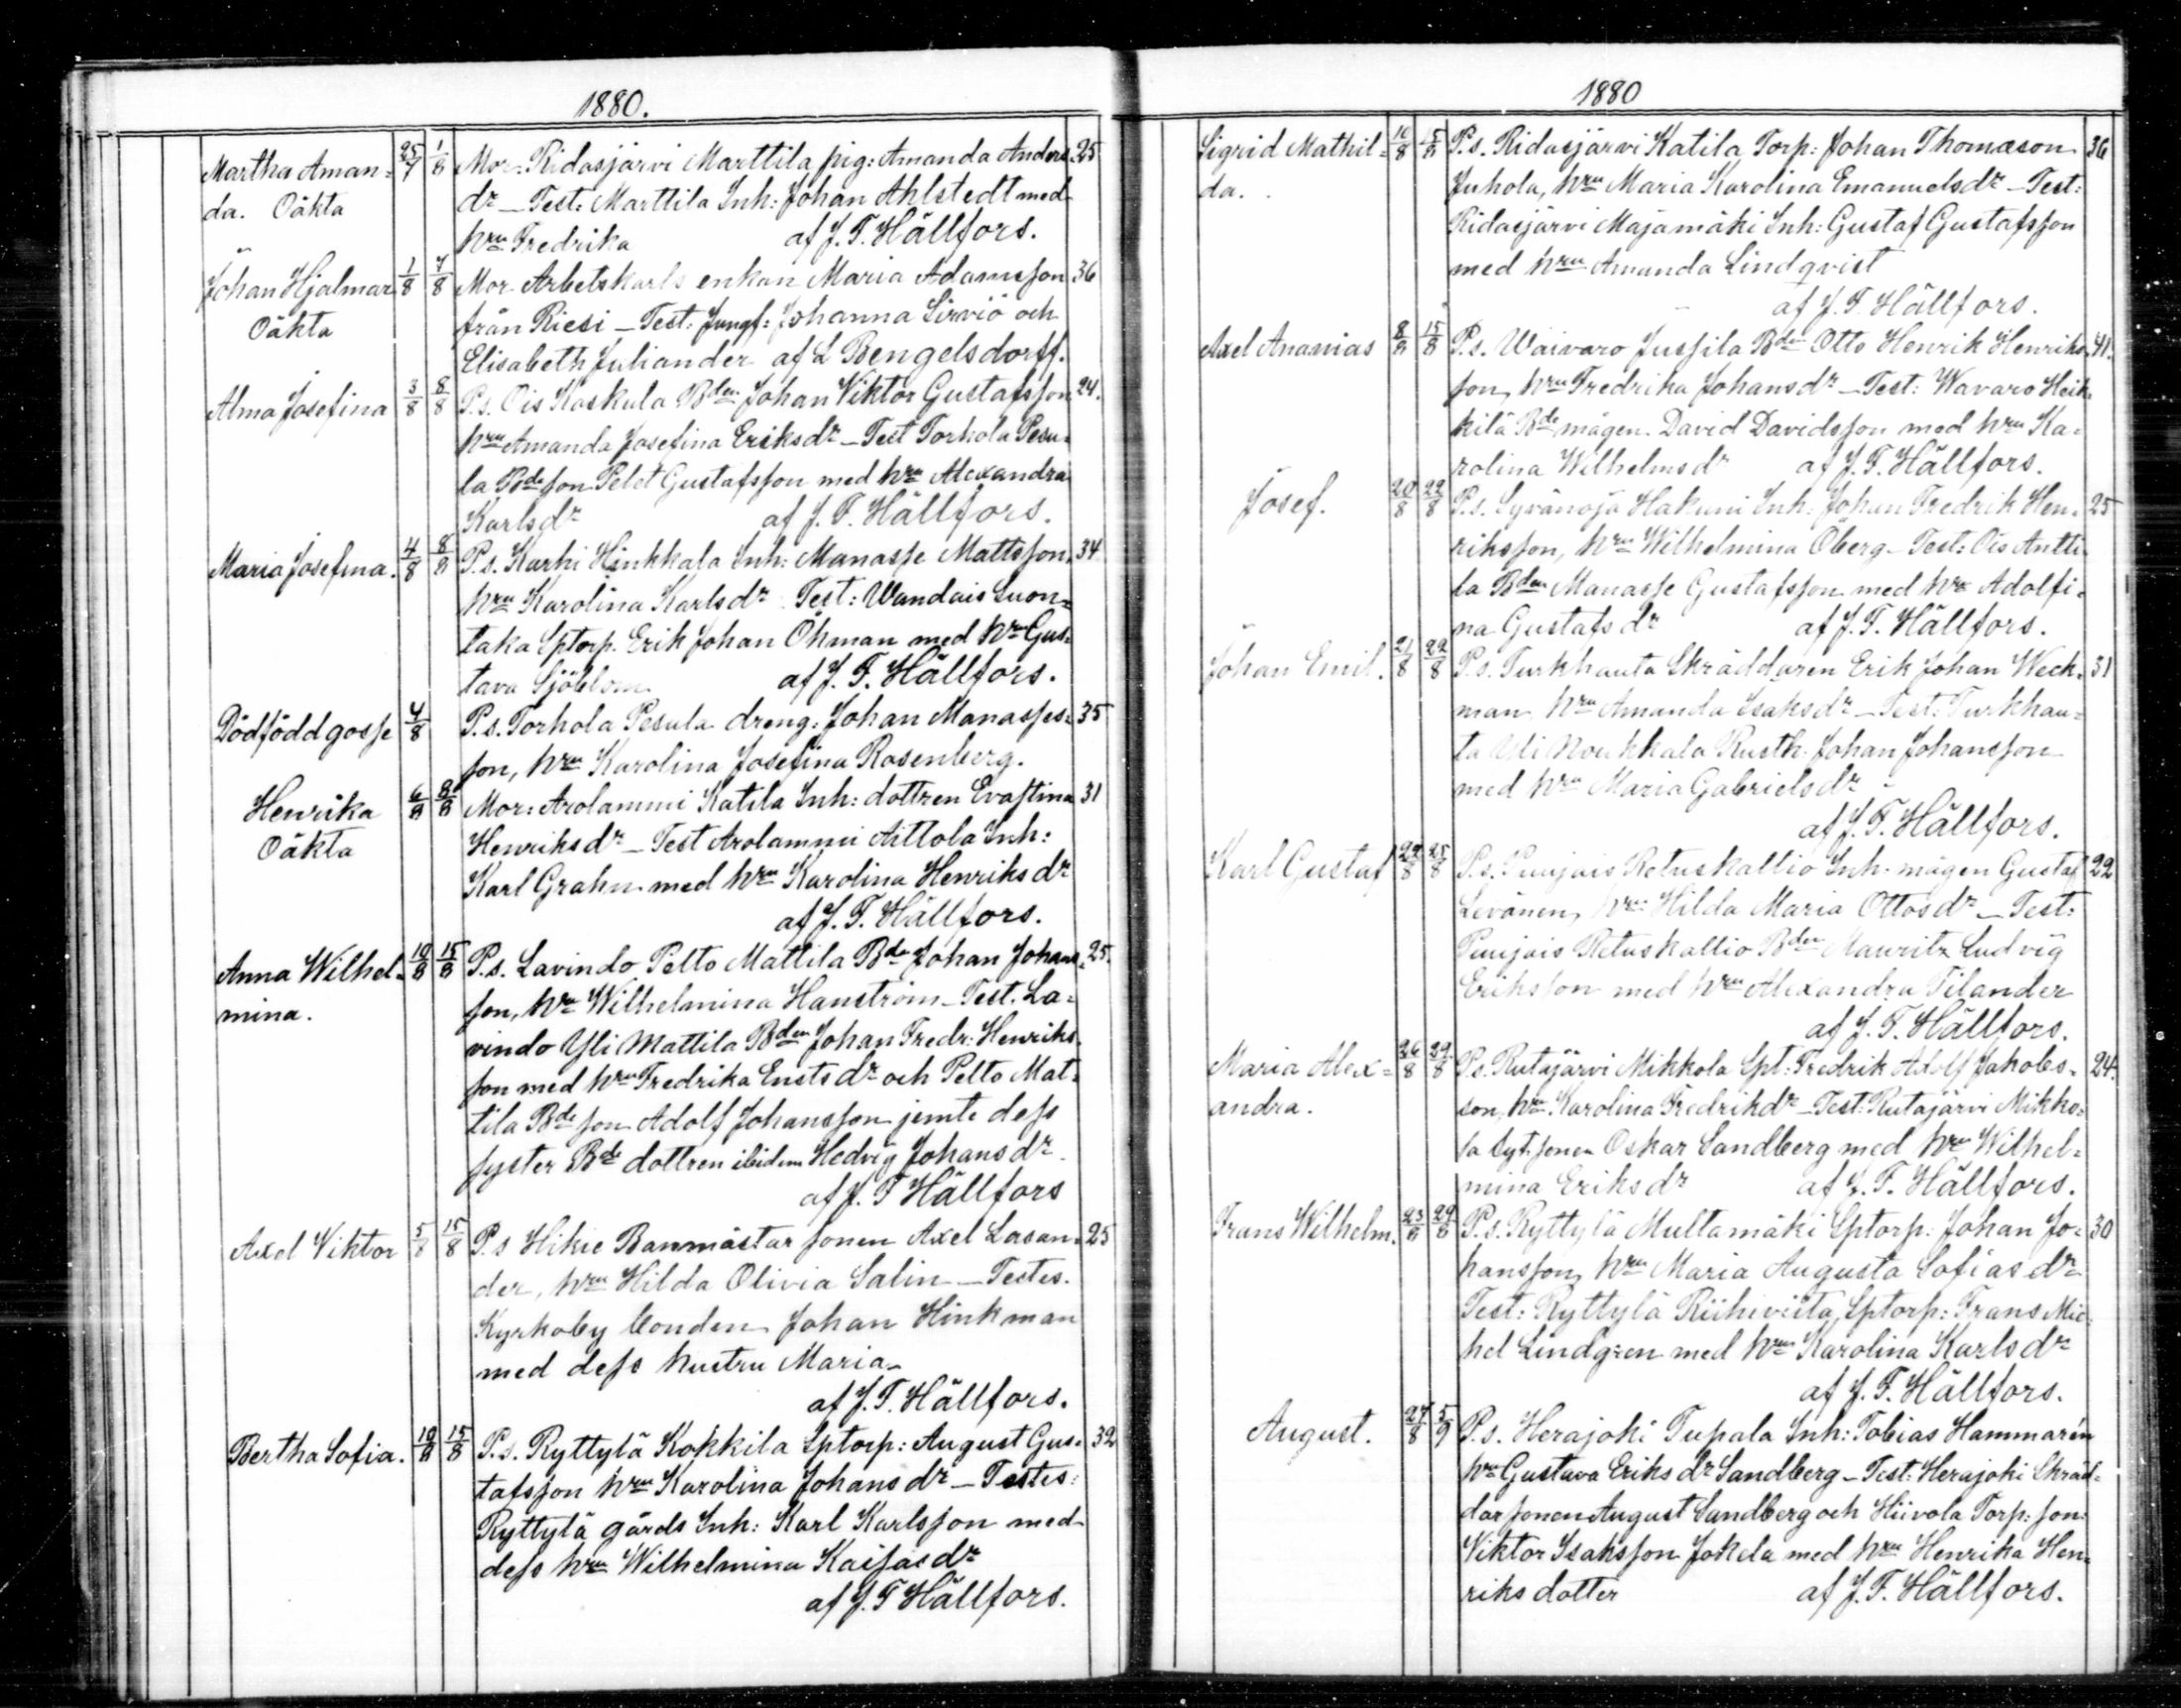 1880.
Martha Aman= 25/7 1/8 Mor. Ridasjärvi Marttila pig: Amanda Anders 25
da. Oäkta dr – Test: Marttila Inh: Johan Ahlstedt med
hru Fredrika af J. F. Hällfors.
Johan Hjalmar 1/8 7/8 Mor Arbetskarls enkan Maria Adamsson 36
Oäkta från Riesi – Test: Jungf: Johanna Sirviö och
Elisabeth Juliander af L Bengelsdorff.
Alma Josefina 3/8 8/8 P.s. Ois Koskula Bden Johan Viktor Gustafsson 24.
hru Amanda Josefina Eriksdr – Test Torhola Pesu=
la Bde son Petet Gustafsson med hru Alexandra
Karlsdr af J. F. Hällfors.
Maria Josefina. 4/8 8/8 P.s. Karhi Hinkkala Inh: Manasse Mattsson, 34.
hru Karolina Karlsdr Test: Wandais Luon=
taka Sptorp. Erik Johan Öhman med hru Gus=
tava Sjöblom af J. F. Hällfors.
Dödfödd gosse 4/8 P.s. Torhola Pesula dreng: Johan Manasses= 35
son, hru Karolina Josefina Rosenberg.
Henrika 6/8 8/8 Mor: Arolammi Katila Inh: dottren Evastina 31
Oäkta Henriksdr – Test Arolammi Aittola Inh:
Karl Grahn med hru Karolina Henriksdr
af J. F. Hällfors.
Anna Wilhel= 10/8 15/8 P.s. Lavindo Pelto Mattila Bde Johan Johans= 25.
mina. son, hru Wilhelmina Hanström – Test. La=
vindo Yli Mattila Bden Johan Fredr: Henriks=
son med hru Fredrika Enstsdr och Pelto Mat=
tila Bde son Adolf Johansson jemte dess
syster Bde dottren ibidem Hedvig Johansdr
af J. F Hällfors
Axel Viktor 5/8 15/8 P.s Hikie Banmästar sonen Axel Lasan= 25
der, hru Hilda Olivia Salin – Testes.
Kyrkoby bonden Johan Hinkman
med dess hustru Maria
af J. F. Hällfors.
Bertha Sofia. 10/8 15/8 P.s. Ryttylä Kokkila Sptorp: August Gus= 32
tafsson hru Karolina Johansdr – Testes:
Ryttylä gårds Inh: Karl Karlsson med
dess hru Wilhelmina Kaifasdr
af J. F Hällfors.
1880
Sigrid Mathil= 10/8 15/8 P.s. Ridasjärvi Katila Torp: Johan Thomasson 36
da. Juhola, hru Maria Karolina Emanuelsdr – Test:
Ridasjärvi Majamäki Inh: Gustaf Gustafsson
med hru Amanda Lindqvist
af J. F. Hällfors.
Axel Ananias 8/8 15/8 P.s. Waivaro Jussila Bden Otto Henrik Henriks= 41.
son, hru Fredrika Johansdr – Test: Wavaro Heik=
kilä Bde mågen David Davidsson med hru Ka=
rolina Wilhelmsdr af J. F. Hällfors.
Josef. 20/8 22/8 P.s. Syvänoja Hakuni Inh: Johan Fredrik Hen= 25
riksson, hru Wilhelmina Öberg – Test: Ois Antti=
la Bden Manasse Gustafsson med hru Adolfi=
na Gustafsdr af J. F. Hällfors.
Johan Emil. 21/8 22/8 P.s. Turkhauta Skräddaren Erik Johan Weck= 31
man, hru Amanda Isaksdr – Test: Turkhau=
ta Yli Noukkala Rusth. Johan Johansson
med hru Maria Gabrielsdr
af J. F. Hällfors.
Karl Gustaf 22/8 25/8 P.s. Punjais Retuskallio Inh. mågen Gustaf 22
Levänen, hru Hilda Maria Ottosdr – Test:
Punjais Retuskallio Bden Mauritz Ludvig
Eriksson med hru Alexandra Tilander
af J. F. Hällfors.
Maria Alex= 26/8 29/8 P.s. Rutajärvi Mikkola Spt: Fredrik Adolf Jakobs= 24.
andra. son, hru Karolina Fredrikdr – Test: Rutajärvi Mikko=
la sonen Oskar Sandberg med hru Wilhel=
mina Eriksdr af J. F. Hällfors.
Frans Wilhelm. 23/8 29/8 P.s. Ryttylä Multamäki Sptorp. Johan Jo= 30
hansson, hru Maria Augusta Sofiasdr
Test: Ryttylä Riihiviita, Sptorp: Frans Mic=
hel Lindgren med hru Karolina Karlsdr
af J. F. Hällfors.
August. 27/8 5/9 P.s. Herajoki Tupala Inh: Tobias Hammarén
hru Gustava Eriksdr Sandberg – Test: Herajoki Skräd=
dar sonen August Sandberg och Hiivola Torp: son
Viktor Isaksson Jokela med hru Henrika Hen=
riks dotter af J. F. Hällfors.